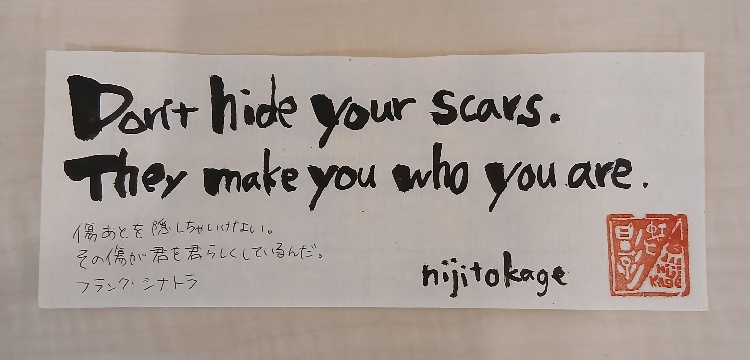 Don't hide your scars.
They make you who you are.
傷あとを隠しちゃいけない。
その傷が君を君らしくしているんだ。
フランク・シナトラ
nijitokage